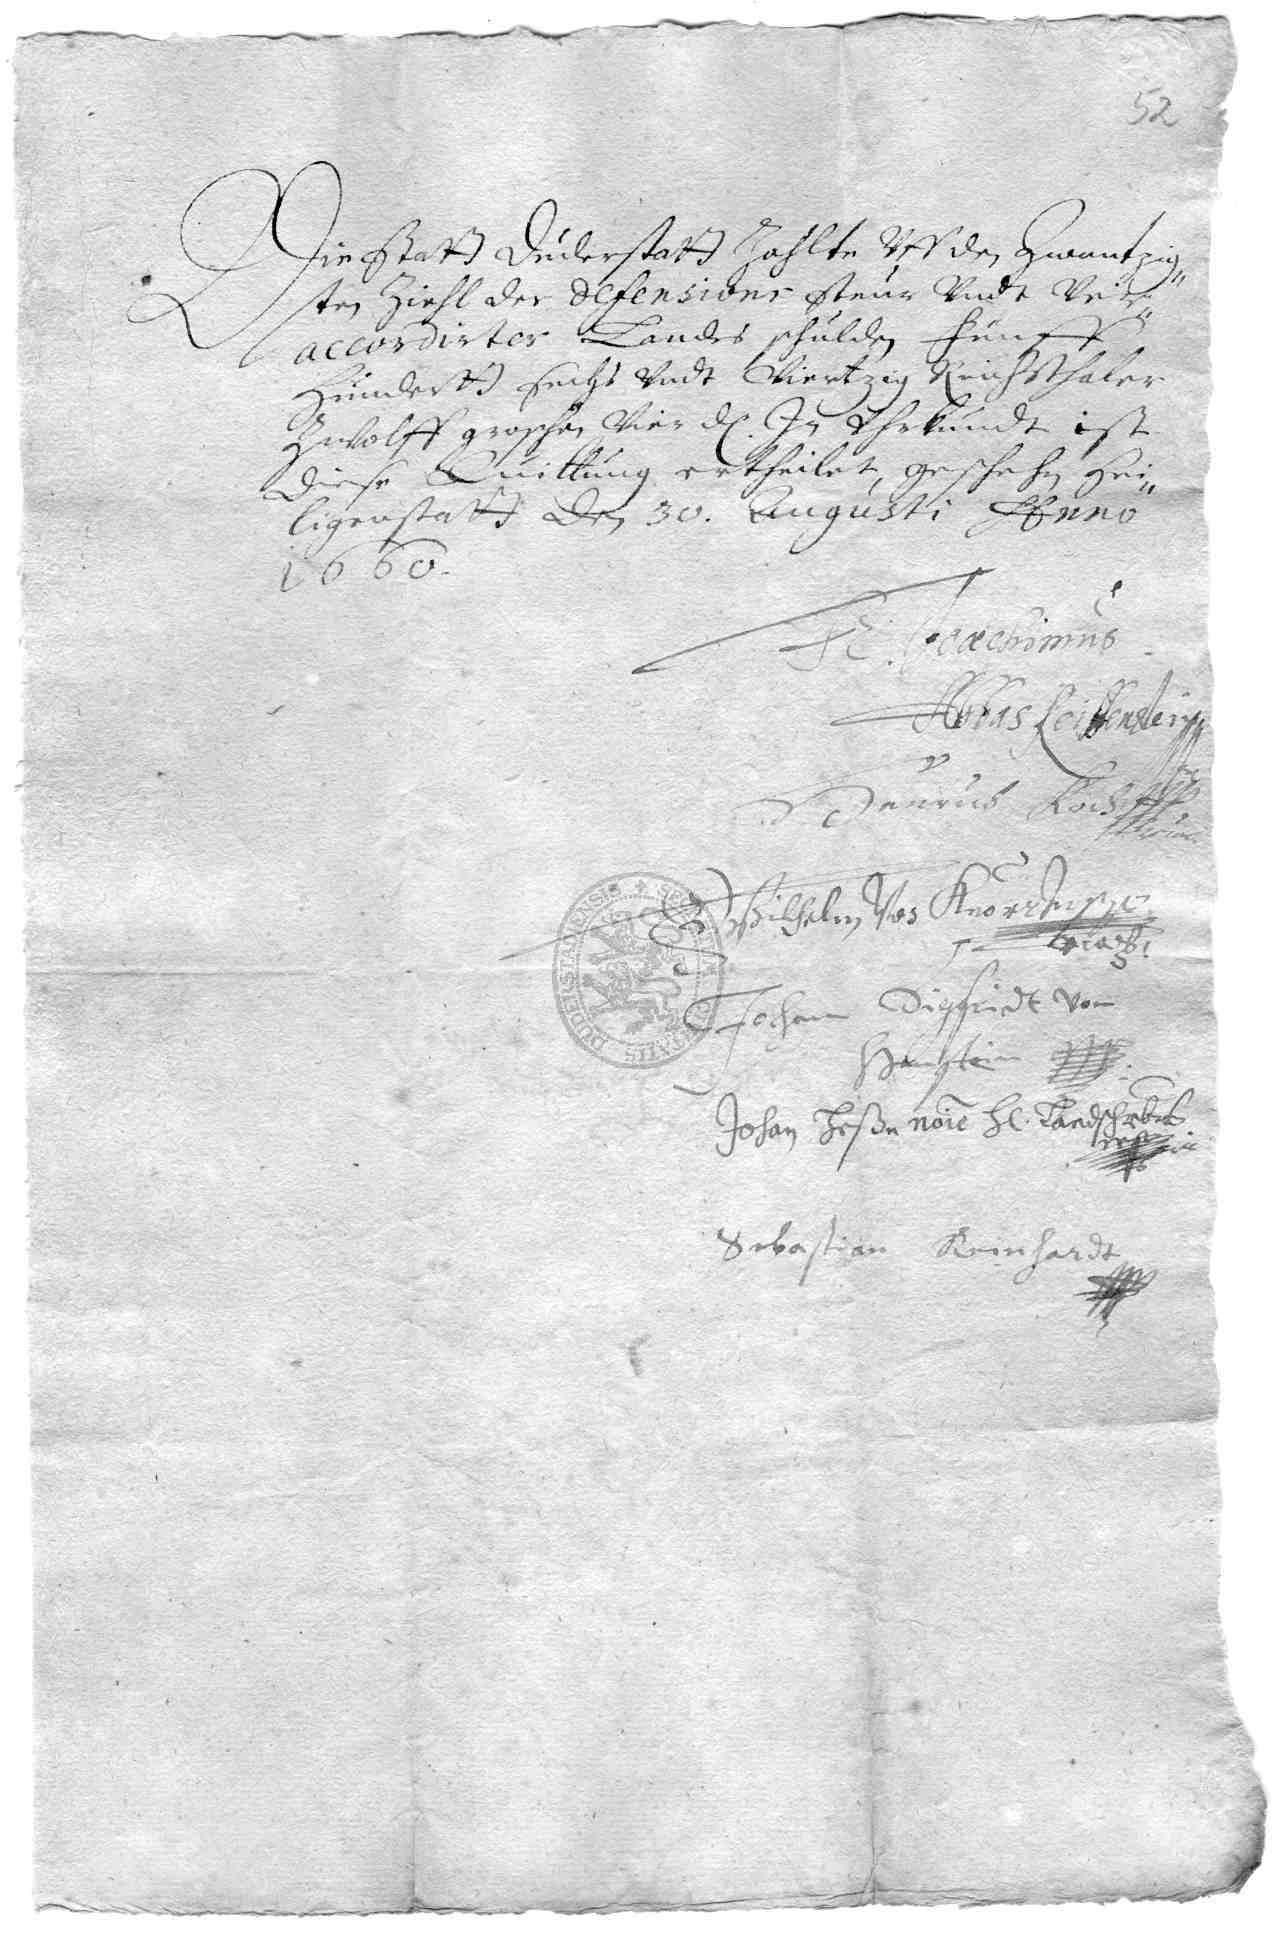 52
Die Statt Duderstatt Zahlte Vff den Zwantzig"
sten Ziehl der defensions steur Vndt Ver"
accordirter Landes schulden Fünff
Hundertt sechs Vndt Viertzig Reichsthaler
Zwolff groschen Vier d. In Vhrkundt ist
diese Quittung ertheilet, geschehen Hei"
ligenstatt den 30. Augusti Anno
1660.
Fr. Joachimus
Abbas Reiffenstein
Wilhelm Von Knorr
Johann Sigfridt von
Hanstein
Johan noie H. Landschreibers
Sebastian Reinhardt
SECRETUM CIVITATIS DUDERSTADENSIS